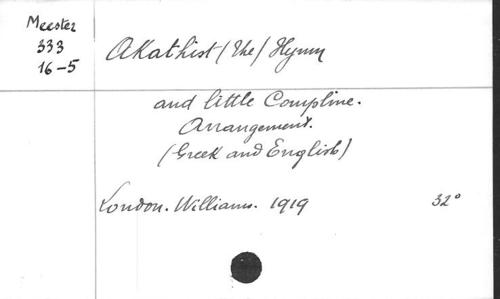 Meester
333
16-5
Akathist (the) Hymn
and little Compline.
Arrangement.
(Greek and English)
London. Williams. 1919 32°